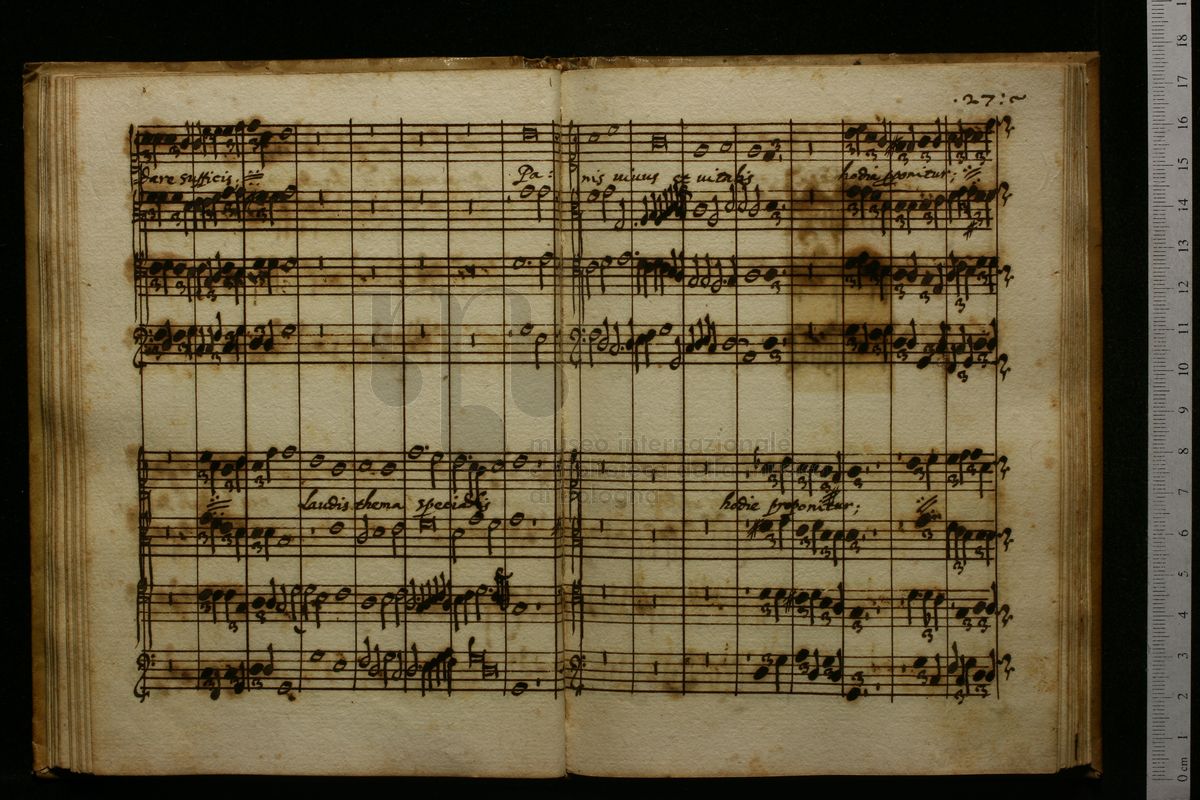 .27:~
dare sufficis:
Pa:
nis vivus et vitalis
hodie pponitur;
Laudis thema specialis
hodie proponitur;
museo internazionale
di bologna
18
17
16
15
14
13
12
11
10
9
8
7
6
5
4
3
2
1
0 cm